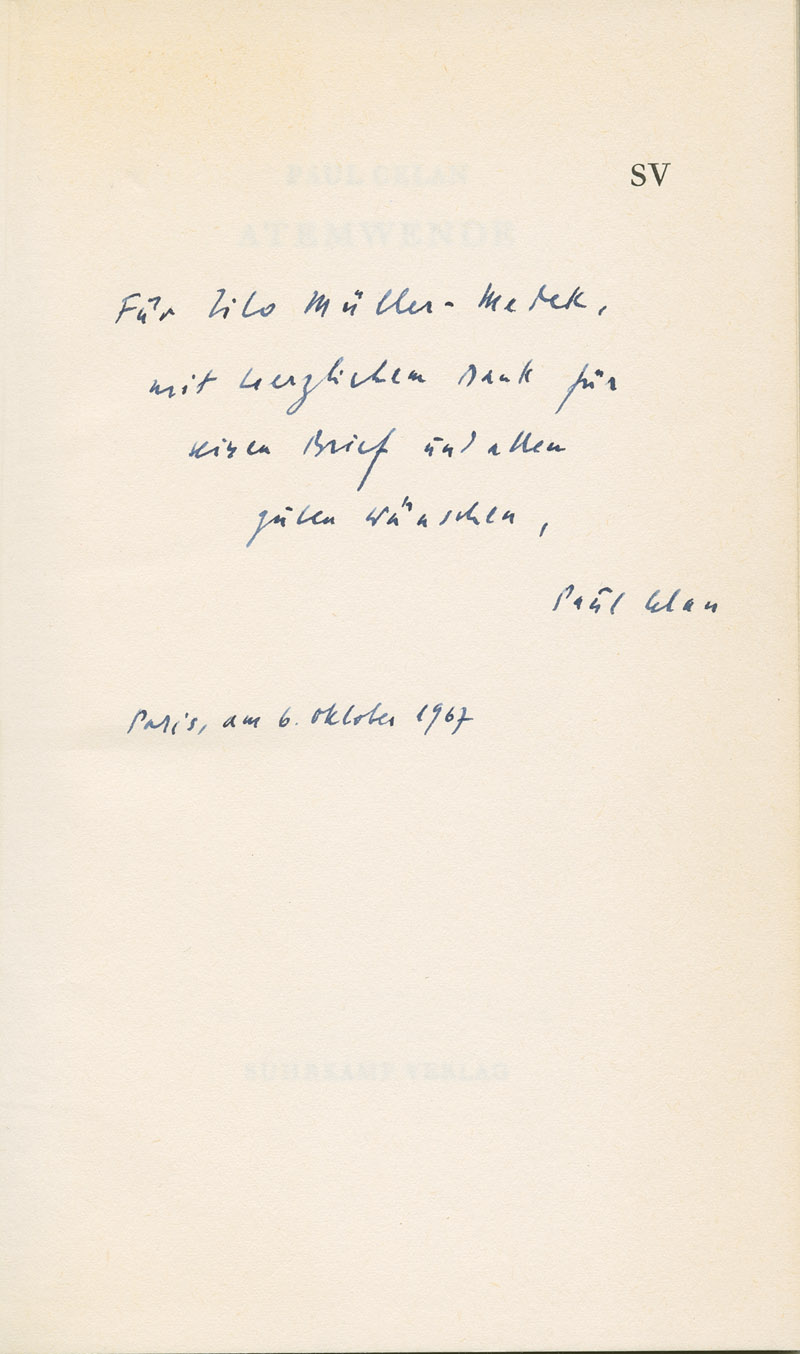 PAUL CELAN
SV
ATEMWENDE
Für Tilo Müller-Medek,
mit herzlichem Dank für
seinen Brief und allen
guten Wünschen,
Paul Celan
Paris, am 6. Oktober 1967
SUHRKAMP VERLAG